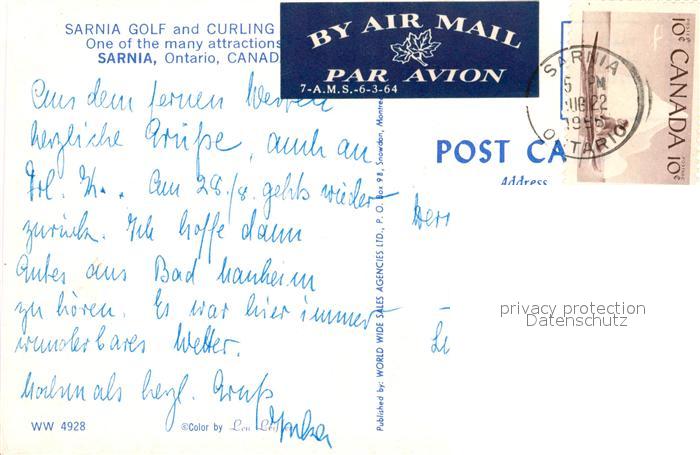 SARNIA GOLF and CURLING
One of the many attractions
SARNIA, Ontario, CANAD
BY AIR MAIL
PAR AVION
7-A.M.S.-6-3-64
SARNIA
5 PM
22
ONTARIO
10¢ CANADA 10¢
POSTES
POSTAGE
Aus dem fernen
herzliche Grüße, auch an
Frl. Th.. Am 28./8. gehts wieder
zurück. Ich hoffe dann
Gutes aus Bad Nauheim
zu hören. Es war hier immer
wunderbares Wetter.
Nochmals herzl. Gruß
POST CA
Address
Herr
Li
privacy protection
Datenschutz
Published by: WORLD WIDE SALES AGENCIES LTD., P. O. BOX 98, Snowdon, Montre
WW 4928
©Color by